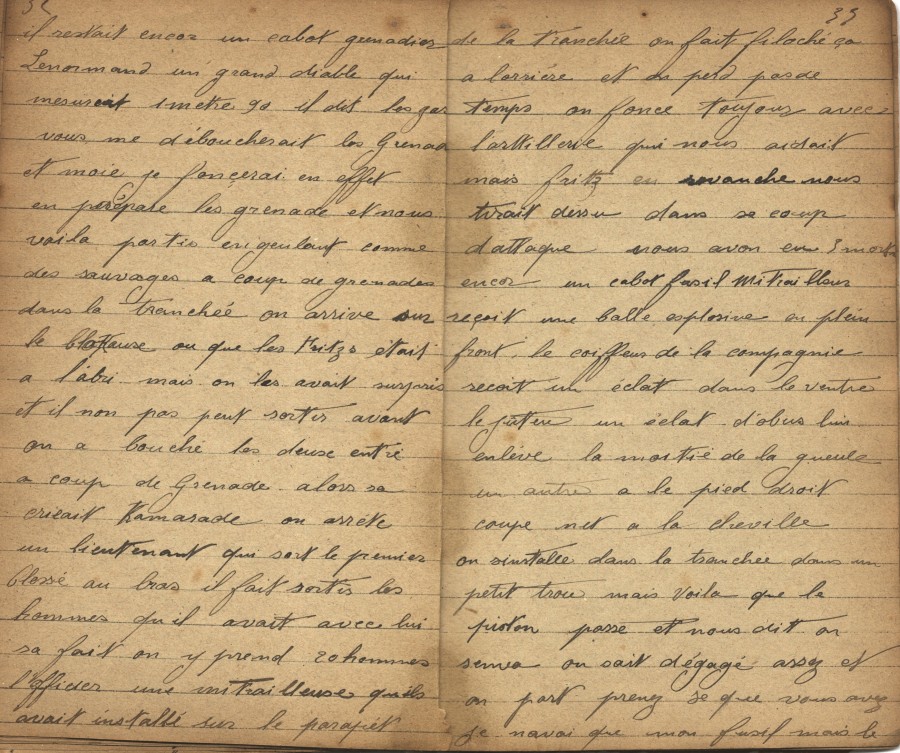 il restait encor un cabot grenadier
Lenormand un grand diable qui
mesurait 1 metre 90 il dit les gas
vous me déboucherait les Grenad
et moie je fonçerai en effet
en prépare les grenade et nous
voila partis engeulant comme
des sauvages a coup de grenades
dans la tranchée on arrive sur
le blokause ou que les Fritzs était
a l'abri mais on les avait surpris
et il non pas peut sortir avant
on a bouché les deuse entré
a coup de Grenade alors sa
crieait Kamarade on arréte
un lieutenant qui sort le premier
blessé au bras il fait sortir les
hommes qu'il avait avec lui
sa fait on y prend 20 hommes
l'officier une mitrailleuse quils
avait installé sur le parapet
35
de la tranchée on fait filoché ça
a larriére et on perd pas de
temps on fonce toujour avec
l'artillerie qui nous aidait
mais fritz en revanche nous
tirait dessu dans se coup
dattaque nous avon eu 3 morts
encor un cabot fusil Mitrailleur
reçoit une balle explosive en plein
front, le coiffeur de la compagnie
recoit un éclat dans le ventre
le juteu un éclat d'obus lui
enléve la moitié de la gueule
un autre a le pied droit
coupe net a la cheville
on sinstalle dans la tranchée dans un
petit trou mais Voila que le
piston passe et nous dit on
senva on sait dégagé assez et
on part prenez se que vous avez
je navai que mon fusil mais le